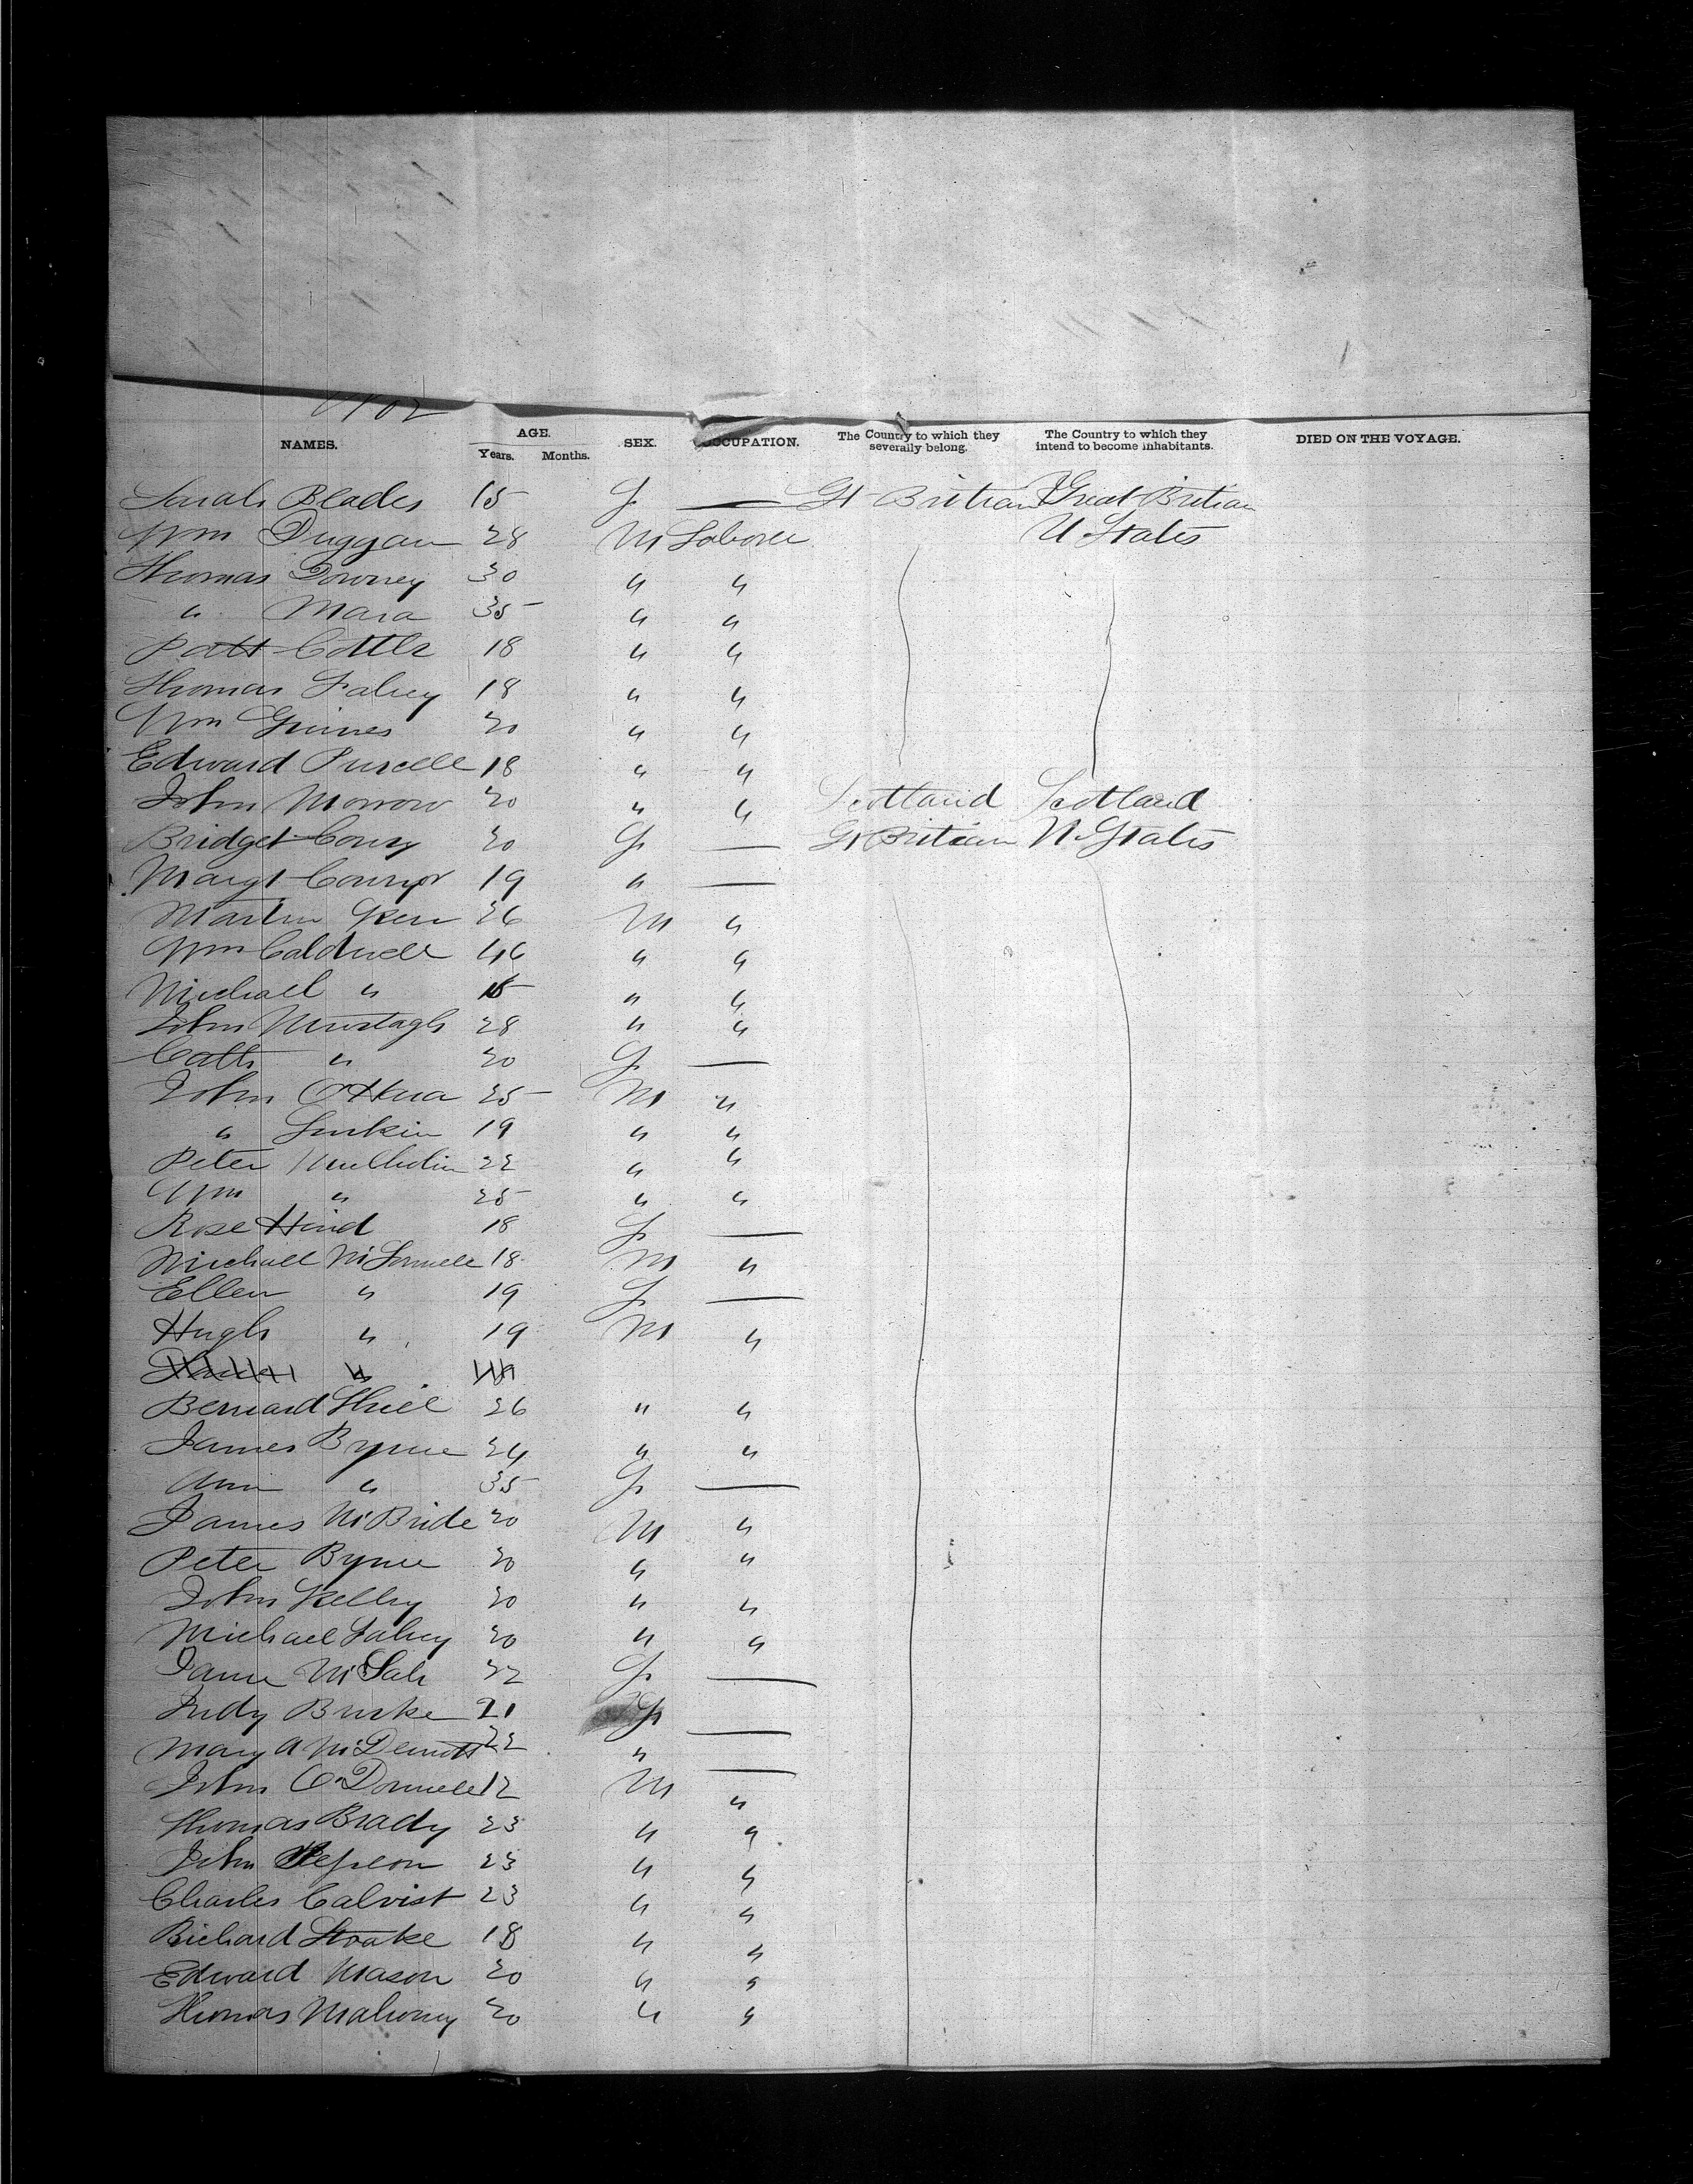 NAMES. AGE. Years. Months. SEX. OCCUPATION. The Country to which they severally belong. The Country to which they intend to become inhabitants. DIED ON THE VOYAGE.
Sarah Blades 15 F — Gt Britian Great Britian
Wm Duggan 28 M Laborer U States
Thomas Downey 30 " "
" Mara 35 " "
Patt Cottle 18 " "
Thomas Fahey 18 " "
Wm Guines 20 " "
Edward Purcell 18 " "
John Morrow 20 " " Scotland Scotland
Bridget Conry 20 F — Gt Britian U States
Margt Connor 19 " —
Martin Kerr 26 M "
Wm Caldwell 46 " "
Michael " 15 " "
John Murtagh 28 " "
Cath " 20 F —
John O'Hara 25 M "
" Larkin 19 " "
Peter 22 " "
Wm " 25 " "
Rose Hind 18 F —
Michael 18 M "
Ellen " 19 F —
Hugh " 19 M "
"
Bernard Shiel 26 " "
James Byrne 24 " "
Ann " 35 F —
James McBride 20 M "
Peter Byrne 20 " "
John Kelly 20 " "
Michael Fahey 20 " "
22 F —
Judy Burke 21 F —
Mary A McDermott 22 " —
John O'Donnell 12 M "
Thomas Brady 23 " "
John 23 " "
Charles Calvist 23 " "
Richard Stoake 18 " "
Edward Mason 20 " "
Thomas Mahoney 20 " "